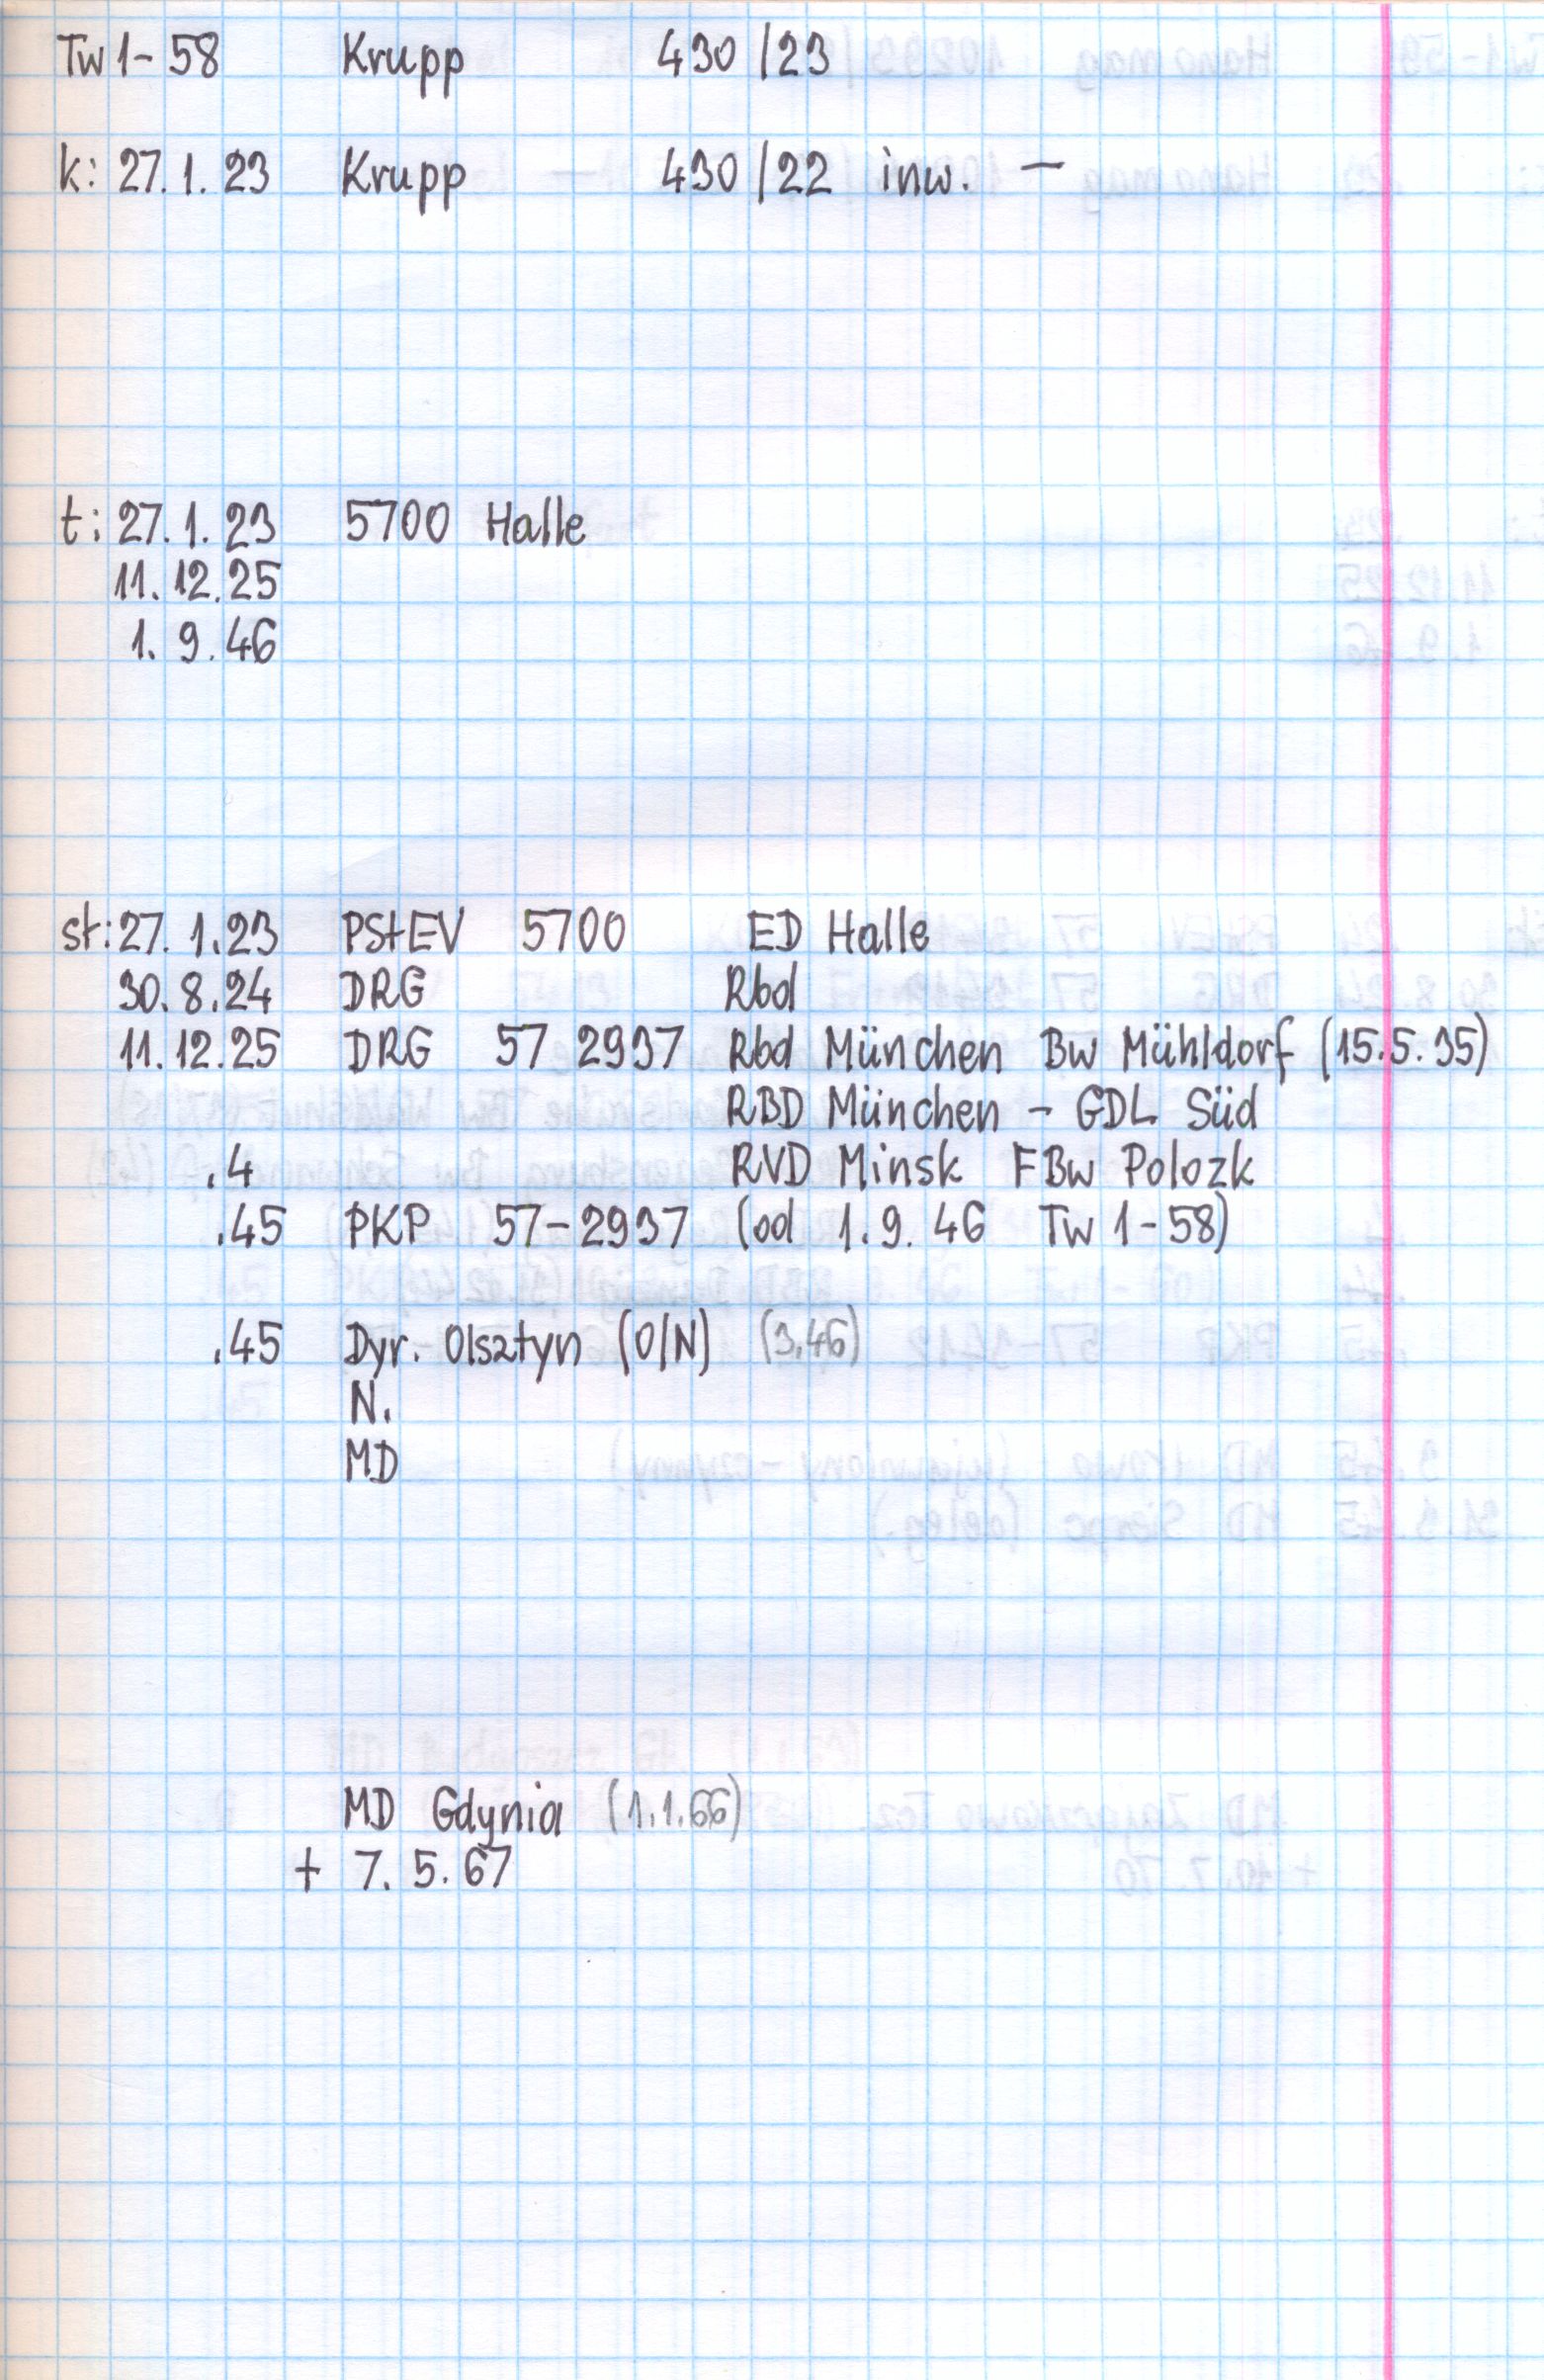 Tw 1-58 Krupp 430/23
k: 27.1.23 Krupp 430/22 inw. —
t: 27.1.23 5700 Halle
11.12.25
1.9.46
st: 27.1.23 PStEV 5700 ED Halle
30.8.24 DRG Rbd
11.12.25 DRG 57 2937 Rbd München Bw Mühldorf (15.5.35)
RBD München - GDL Süd
.4 RVD Minsk FBw Polozk
.45 PKP 57-2937 (od 1.9.46 Tw 1-58)
.45 Dyr. Olsztyn (O/N) (3.46)
N.
MD
MD Gdynia (1.1.66)
+ 7.5.67